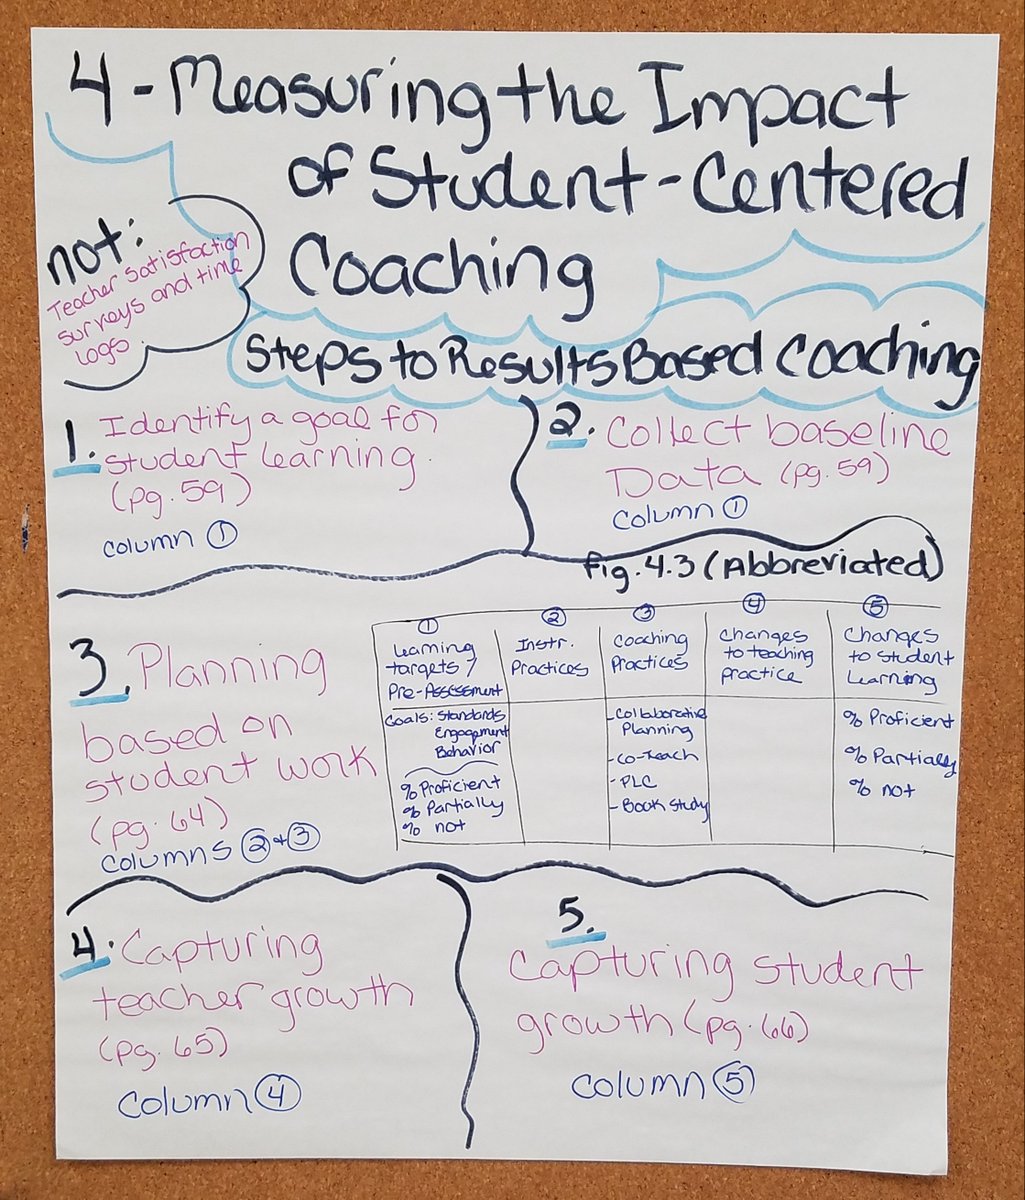 4 - Measuring the Impact
of Student-Centered
Coaching
not:
Teacher Satisfaction
surveys and time
logs
Steps to Results Based Coaching
1. Identify a goal for
student learning.
(pg. 59)
column ①
2. Collect baseline
Data (pg. 59)
column ①
fig. 4.3 (Abbreviated)
3. Planning
based on
student work
(pg. 64)
columns ② + ③
①
Learning
targets /
Pre-Assessment
②
Instr.
Practices
③
Coaching
Practices
④
Changes
to teaching
practice
⑤
Changes
to student
Learning
Goals: Standards
Engagement
Behavior
% Proficient
% Partially
% not
- Collaborative
Planning
- co-teach
- PLC
- Book Study
% Proficient
% Partially
% not
4. Capturing
teacher growth
(pg. 65)
column ④
5.
Capturing student
growth (pg. 66)
column ⑤